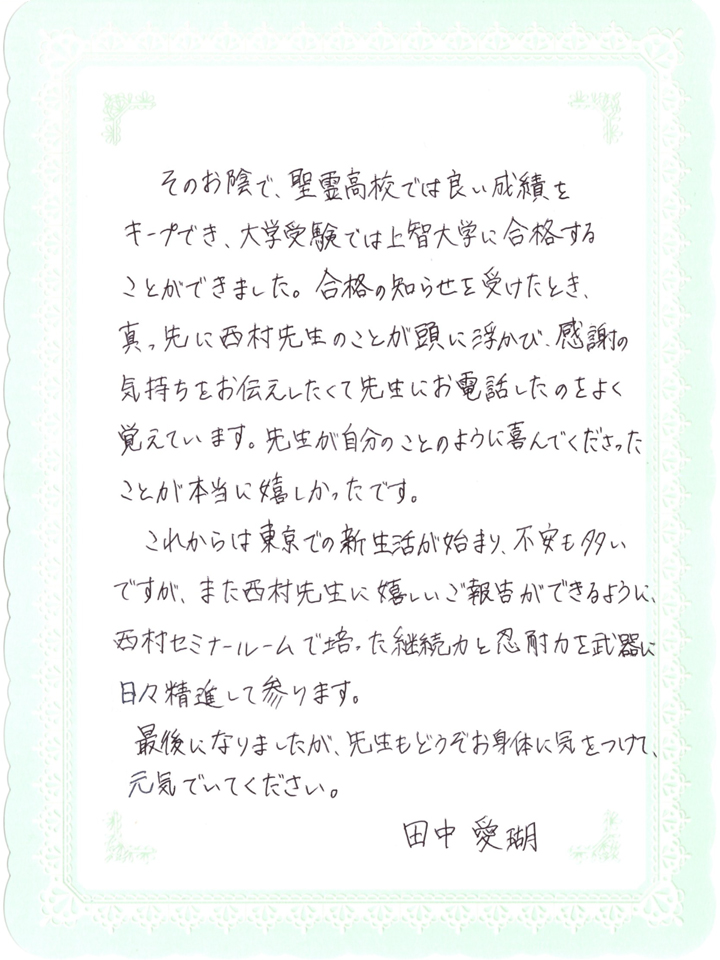 そのお陰で、聖霊高校では良い成績を
キープでき、大学受験では上智大学に合格する
ことができました。合格の知らせを受けたとき、
真っ先に西村先生のことが頭に浮かび、感謝の
気持ちをお伝えしたくて先生にお電話したのをよく
覚えています。先生が自分のことのように喜んでくださった
ことが本当に嬉しかったです。
これからは東京での新生活が始まり、不安も多い
ですが、また西村先生に嬉しいご報告ができるように、
西村セミナールームで培った継続力と忍耐力を武器に
日々精進して参ります。
最後になりましたが、先生もどうぞお身体に気をつけて、
元気でいてください。
田中 愛瑚